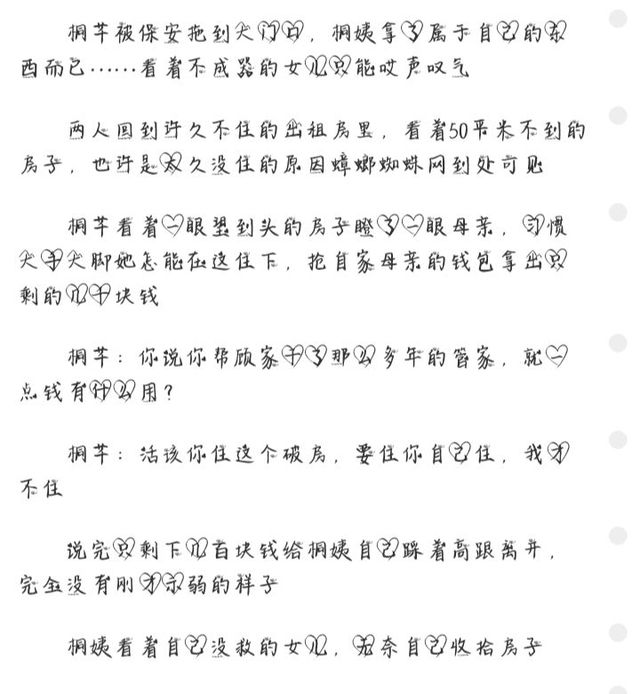 桐芊被保安拖到大门口，桐姨拿了属于自己的东
西而已……看着不成器的女儿只能哎声叹气
两人回到许久不住的出租房里，看着50平米不到的
房子，也许是太久没住的原因蟑螂蜘蛛网到处可见
桐芊看着一眼望到头的房子瞪了一眼母亲，习惯
大手大脚她怎能在这住下，抢自家母亲的钱包拿出只
剩的几千块钱
桐芊：你说你帮顾家干了那么多年的管家，就一
点钱有什么用？
桐芊：活该你住这个破房，要住你自己住，我才
不住
说完只剩下几百块钱给桐姨自己踩着高跟离开，
完全没有刚才示弱的样子
桐姨看着自己没救的女儿，无奈自己收拾房子